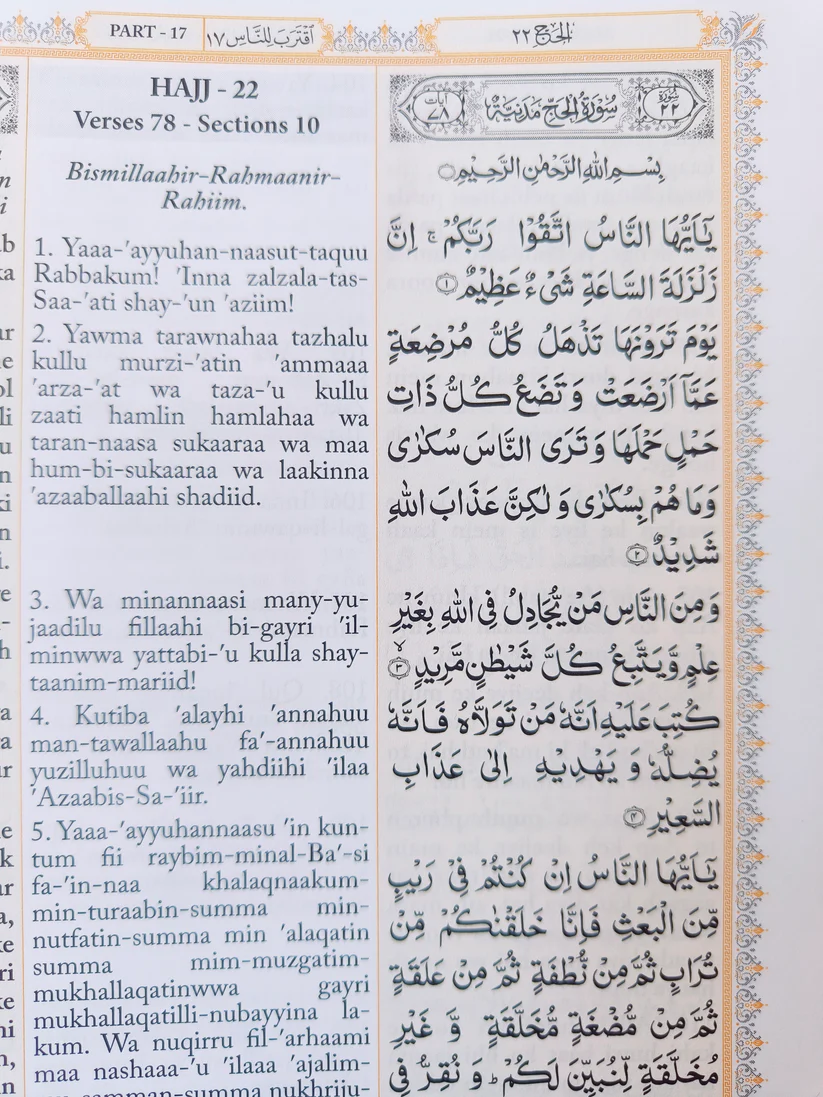 PART - 17
اقْتَرَبَ لِلنَّاسِ ١٧
اَلْحَجّ ٢٢
HAJJ - 22
Verses 78 - Sections 10
Bismillaahir-Rahmaanir-
Rahiim.
1. Yaaa-'ayyuhan-naasut-taquu
Rabbakum! 'Inna zalzala-tas-
Saa-'ati shay-'un 'aziim!
2. Yawma tarawnahaa tazhalu
kullu murzi-'atin 'ammaaa
'arza-'at wa taza-'u kullu
zaati hamlin hamlahaa wa
taran-naasa sukaaraa wa maa
hum-bi-sukaaraa wa laakinna
'azaaballaahi shadiid.
3. Wa minannaasi many-yu-
jaadilu fillaahi bi-gayri 'il-
minwwa yattabi-'u kulla shay-
taanim-mariid!
4. Kutiba 'alayhi 'annahuu
man-tawallaahu fa'-annahuu
yuzilluhuu wa yahdiihi 'ilaa
'Azaabis-Sa-'iir.
5. Yaaa-'ayyuhannaasu 'in kun-
tum fii raybim-minal-Ba'-si
fa-'in-naa khalaqnaakum-
min-turaabin-summa min-
nutfatin-summa min 'alaqatin
summa mim-muzgatim-
mukhallaqatinwwa gayri
mukhallaqatilli-nubayyina la-
kum. Wa nuqirru fil-'arhaami
maa nashaaa-'u 'ilaaa 'ajalim-
samman-summa nukhriju-
سُوْرَةُ ٢٢
سُوْرَةُ الْحَجِّ مَدَنِيَّةٌ
اٰيَات ٧٨
بِسْمِ اللّٰهِ الرَّحْمٰنِ الرَّحِيْمِ
يٰۤاَيُّهَا النَّاسُ اتَّقُوْا رَبَّكُمْ ۚ اِنَّ
زَلْزَلَةَ السَّاعَةِ شَيْءٌ عَظِيْمٌ ۝١
يَوْمَ تَرَوْنَهَا تَذْهَلُ كُلُّ مُرْضِعَةٍ
عَمَّاۤ اَرْضَعَتْ وَتَضَعُ كُلُّ ذَاتِ
حَمْلٍ حَمْلَهَا وَتَرَى النَّاسَ سُكٰرٰى
وَمَا هُمْ بِسُكٰرٰى وَلٰكِنَّ عَذَابَ اللّٰهِ
شَدِيْدٌ ۝٢
وَمِنَ النَّاسِ مَنْ يُّجَادِلُ فِي اللّٰهِ بِغَيْرِ
عِلْمٍ وَّيَتَّبِعُ كُلَّ شَيْطٰنٍ مَّرِيْدٍ ۙ ۝٣
كُتِبَ عَلَيْهِ اَنَّهٗ مَنْ تَوَلَّاهُ فَاَنَّهٗ
يُضِلُّهٗ وَيَهْدِيْهِ اِلٰى عَذَابِ
السَّعِيْرِ ۝٤
يٰۤاَيُّهَا النَّاسُ اِنْ كُنْتُمْ فِيْ رَيْبٍ
مِّنَ الْبَعْثِ فَاِنَّا خَلَقْنٰكُمْ مِّنْ
تُرَابٍ ثُمَّ مِنْ نُّطْفَةٍ ثُمَّ مِنْ عَلَقَةٍ
ثُمَّ مِنْ مُّضْغَةٍ مُّخَلَّقَةٍ وَّغَيْرِ
مُخَلَّقَةٍ لِّنُبَيِّنَ لَكُمْ ؕ وَنُقِرُّ فِي